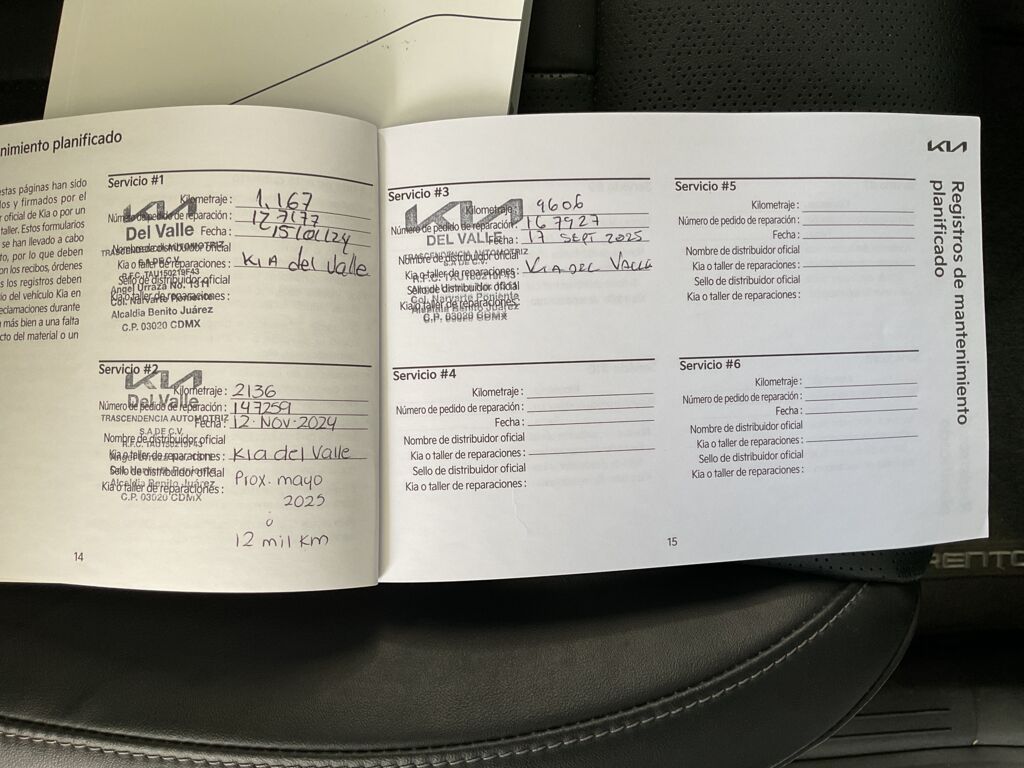 nimiento planificado
estas páginas han sido
dos y firmados por el
r oficial de Kia o por un
taller. Estos formularios
se han llevado a cabo
to, por lo que deben
on los recibos, órdenes
s los registros deben
io del vehículo Kia en
eclamaciones durante
más bien a una falta
cto del material o un
Servicio #1
Kilometraje : 1,167
Número de pedido de reparación : 127177
Fecha : 15/01/24
Nombre de distribuidor oficial
Kia o taller de reparaciones : KIA del Valle
Sello de distribuidor oficial
Kia o taller de reparaciones :
KIA
Del Valle
TRASCENDENCIA AUTOMOTRIZ
S.A DE C.V.
R.F.C. TAU150219F43
Angel Urraza No. 1311
Col. Narvarte Poniente
Alcaldia Benito Juárez
C.P. 03020 CDMX
Servicio #2
Kilometraje : 2136
Número de pedido de reparación : 147259
Fecha : 12-NOV-2024
Nombre de distribuidor oficial
Kia o taller de reparaciones : Kia del Valle
Sello de distribuidor oficial
Kia o taller de reparaciones :
Prox. mayo
2025
ó
12 mil km
KIA
Del Valle
TRASCENDENCIA AUTOMOTRIZ
S.A DE C.V.
R.F.C. TAU150219F43
Alcaldia Benito Juárez
C.P. 03020 CDMX
14
Servicio #3
Kilometraje : 9606
Número de pedido de reparación : 167927
Fecha : 17 SEPT 2025
Nombre de distribuidor oficial
Kia o taller de reparaciones : KIA DEL VALLE
Sello de distribuidor oficial
Kia o taller de reparaciones :
KIA
DEL VALLE
TRASCENDENCIA AUTOMOTRIZ
S.A DE C.V.
R.F.C. TAU150219F43
Col. Narvarte Poniente
Alcaldia Benito Juárez
C.P. 03020 CDMX
Servicio #4
Kilometraje :
Número de pedido de reparación :
Fecha :
Nombre de distribuidor oficial
Kia o taller de reparaciones :
Sello de distribuidor oficial
Kia o taller de reparaciones :
Servicio #5
Kilometraje :
Número de pedido de reparación :
Fecha :
Nombre de distribuidor oficial
Kia o taller de reparaciones :
Sello de distribuidor oficial
Kia o taller de reparaciones :
Servicio #6
Kilometraje :
Número de pedido de reparación :
Fecha :
Nombre de distribuidor oficial
Kia o taller de reparaciones :
Sello de distribuidor oficial
Kia o taller de reparaciones :
15
KIA
Registros de mantenimiento
planificado
RENTO